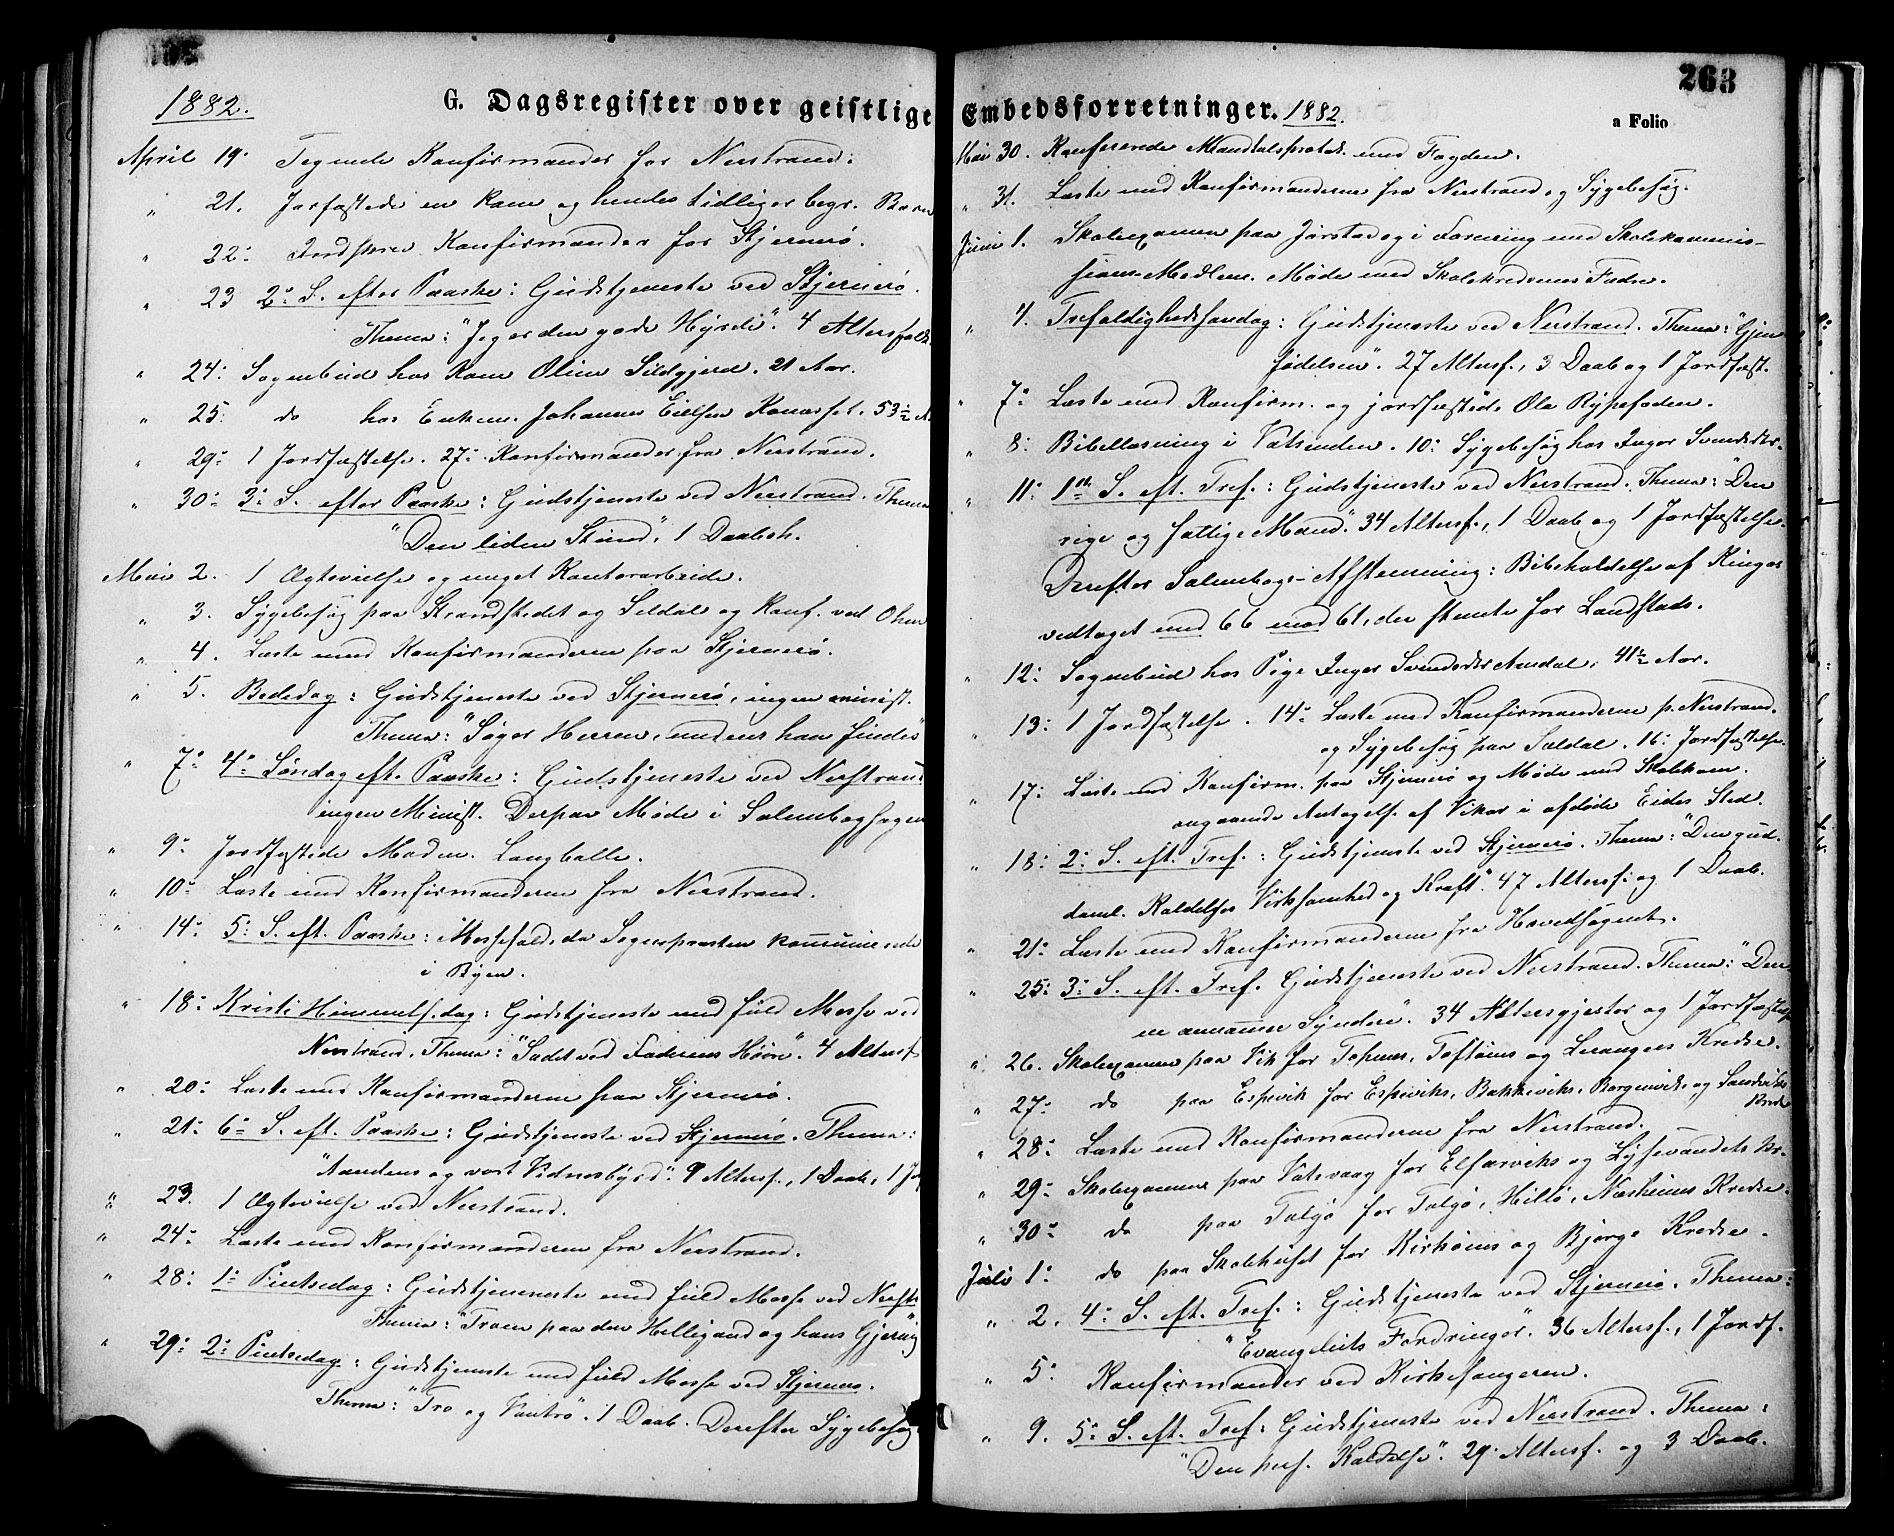 1882.
G. Dagsregister over geistlige
April 19. Tegnede Konfirmander for Nerstrand.
" 21. Jorfæstede en Kone og hendes tidliger begr. Barn
" 22: Indskrev Konfirmander for Stjernerø.
" 23 2: S. efter Paaske: Gudstjeneste ved Stjernerø.
Thema: "Jeg er den gode Hyrde". 4 Altersf
" 24: Sognebud hos Kone Oline 21 Aar.
" 25. do hos Enken Johanne Eielsen 53½ A.
" 29: 1 Jordfæstelse. 27: Konfirmander fra Nerstrand.
" 30: 3: S. efter Paaske: Gudstjeneste ved Nerstrand. Thema
"Den liden Stund", 1 Daabsh.
Mai 2. 1 Ægtevielse og meget Kontorarbeide.
" 3. Sygebesøg paa Strandstedet og Seldal og Konf. ved
" 4. Læste med Konfirmanderne paa Stjernerø.
" 5. Bededag: Gudstjeneste ved Stjernerø, ingen minist.
Thema: "Søger Herren, medens han findes"
" 7: 4: Søndag eft. Paaske: Gudstjeneste ved Nerstrand
ingen Minist. Derpaa Møde i Salmebogsagen
" 9: Jordfæstede Langballe.
" 10: Læste med Konfirmanderne fra Nerstrand.
" 14: 5: S. eft. Paaske: Messefald, da Sognepræsten kommunicerede
i Byen.
" 18: Kristi Himmelf.dag: Gudstjeneste med fuld Messe ved
Nerstrand. Thema: "Sædet ved Faderens Høire". 4 Altersf
" 20: Læste med Konfirmanderne paa Stjernerø.
" 21: 6: S. eft. Paaske: Gudstjeneste ved Stjernerø. Thema:
"Aandens og vort Vidnesbyrd". 9 Altersf., 1 Daab, 1
" 23. 1 Ægtevielse ved Nerstrand.
" 24: Læste med Konfirmanderne fra Nerstrand.
" 28: 1: Pintsedag: Gudstjeneste med fuld Messe ved
Thema: "Troen paa den Helligaand og hans Gjerning
" 29: 2: Pintsedag: Gudstjeneste med fuld Messe ved Stjernerø.
Thema: "Tro og Vantro". 1 Daab. Derefter Sygebesøg
263
Embedsforretninger. 1882.
a Folio
Mai 30. Konfererede Mandtalsprotok. med Fogden.
" 31. Læste med Konfirmanderne fra Nerstrand og Sygebesøg.
Juni 1. Skoleexamen paa Jørstad og i Forening med Skolekommis-
sions Medlem. Møde med Skolekredsenes Fædre.
" 4. Trefoldighedssøndag: Gudstjeneste ved Nerstrand. Thema: "Gjen
fødelsen". 27 Altersf., 3 Daab og 1 Jordfæst.
" 7: Læste med Konfirm. og jordfæstede Ola Rypefoden.
" 8: Bibellæsning i Vatsenden. 10: Sygebesøg hos Inger Svendsdtr.
" 11: 1ste S. eft. Tref.: Gudstjeneste ved Nerstrand. Thema: "Den
rige og fattige Mand". 34 Altersf., 1 Daab og 1 Jordfæstelse.
Derefter Salmebogs-Afstemning: Bibeholdelse af Kingos
vedtaget med 66 mod 61, der stemte for Landstads.
" 12: Sognebud hos Pige Inger Svendsdtr Amdal, 41½ Aar.
" 13: 1 Jordfæstelse. 14: Læste med Konfirmanderne p. Nerstrand
og Sygebesøg paa Saldal. 16: Jordfæstelse.
" 17: Læste med Konfirm. paa Stjernerø og Møde med Skolekom.
angaaende Antagels. af Vikar i afdøde Eides Sted.
" 18: 2: S. eft. Tref.: Gudstjeneste ved Stjernerø. Thema: "Den gud-
doml. Kaldelses Virksomhed og Kraft". 47 Altersf. og 1 Daab.
" 21: Læste med Konfirmanderne fra Hovedsognet.
" 25: 3: S. eft. Tref. Gudstjeneste ved Nerstrand. Thema: "Den
Syndere". 34 Altersgjester og 1 Jordfæstelse
" 26. Skoleexamen paa Vik for Toftøens og Leranger Kredse.
" 27: do paa Espevik for Espeviks, Bakkeviks, Borgenviks og Sandviks
Kredse
" 28: Læste med Konfirmanderne fra Nerstrand.
" 29: Skoleexamen paa Vatsvaag for Elfarviks og Lysevandets Kr.
" 30: do paa Talgø for Talgø, Hillø, Næsheims Kredse.
Juli 1: do paa Skolehuset for Kirkøens og Bjørge Kredse.
" 2. 4: S. eft. Tref.: Gudstjeneste ved Stjernerø. Thema:
"Evangeliets Fordringer". 36 Altersf., 1 Jordf.
" 5: Konfirmander ved Kirkesangeren.
" 9. 5: S. eft. Tref: Gudstjeneste ved Nerstrand. Thema:
"Den pers. Kaldelse". 29 Altersf. og 3 Daab.